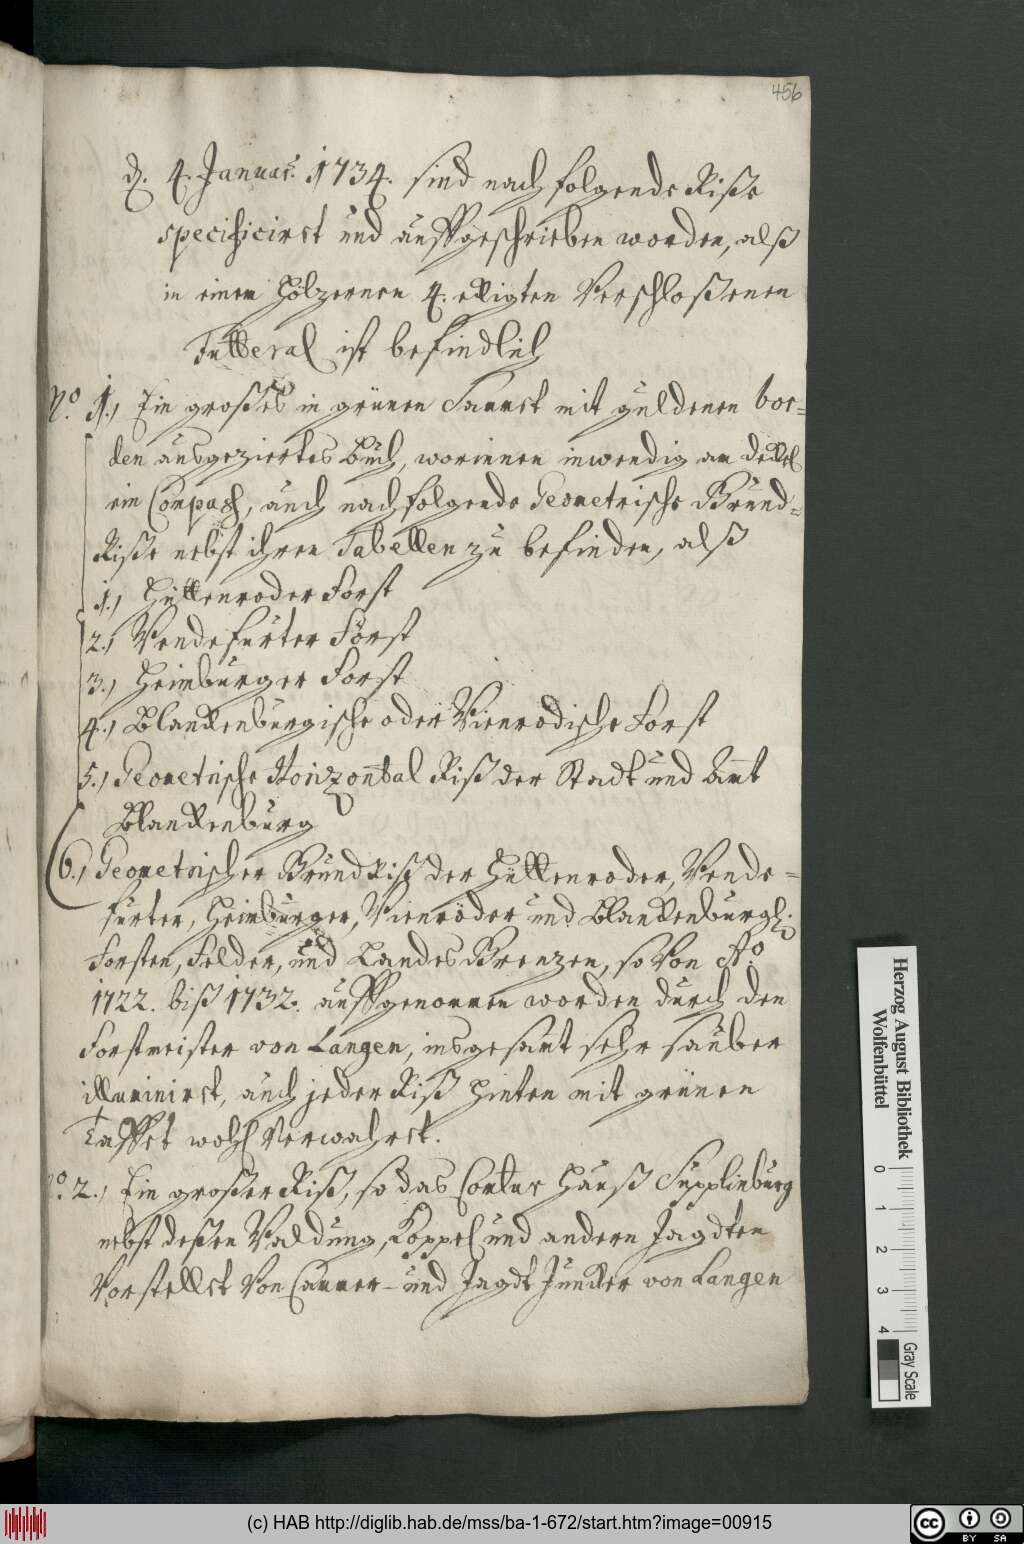 456
d. 4. Januar: 1734. sind nachfolgende Riße
specificirt und auffgeschrieben worden, alß
in einem Höltzernen 4. eckigten Verschloßenen
Futteral ist befindlich
No. 1., Ein großes in grünen Sammt mit guldenen bor=
den ausgeziertes Buch, worinnen inwendig am deckel
ein Compaß, auch nachfolgende Geometrische Grund=
Riße nebst ihren Tabellen zu befinden, alß
1., Hüttenroder Forst
2., Wendefurter Forst
3., Heimburger Forst
4., Blanckenburgische oder Wienrodische Forst
5., Geometrische Horizontal Riß der Stadt und Amt
Blanckenburg
6., Geometrischer Grund Riß der Hüttenroder, Wende=
furter, Heimburger, Wienröder und Blanckenburgh:
Forsten, Felder, und Landes Grenzen, so von Ao.
1722. biß 1732. auffgenommen worden durch den
Forstmeister von Langen, insgesamt sehr sauber
illuminirt, auch jeder Riß hinten mit grünen
Taffet wohl Verwahrt.
No. 2., Ein großer Riß, so das Closter Hauß Supplinburg
nebst deßen Waldung, Koppel und andern Jagdten
Vorstellt Von Cammer- und Jagdt Juncker von Langen
Herzog August Bibliothek
Wolfenbüttel
0 1 2 3 4
Gray Scale
(c) HAB http://diglib.hab.de/mss/ba-1-672/start.htm?image=00915
cc BY SA